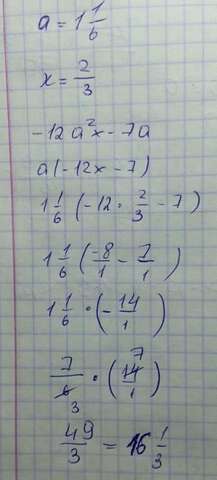 a = 1 1/6
x = 2/3
-12a²x - 7a
a(-12x - 7)
1 1/6 (-12 · 2/3 - 7)
1 1/6 (-8/1 - 7/1)
1 1/6 · (-14/1)
7/6 3 · (14 7/1)
49/3 = 16 1/3